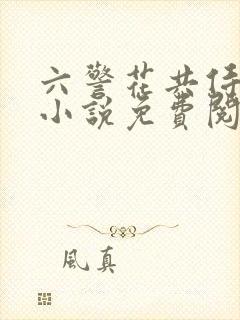 六警花共侍
小說免費閱
風真